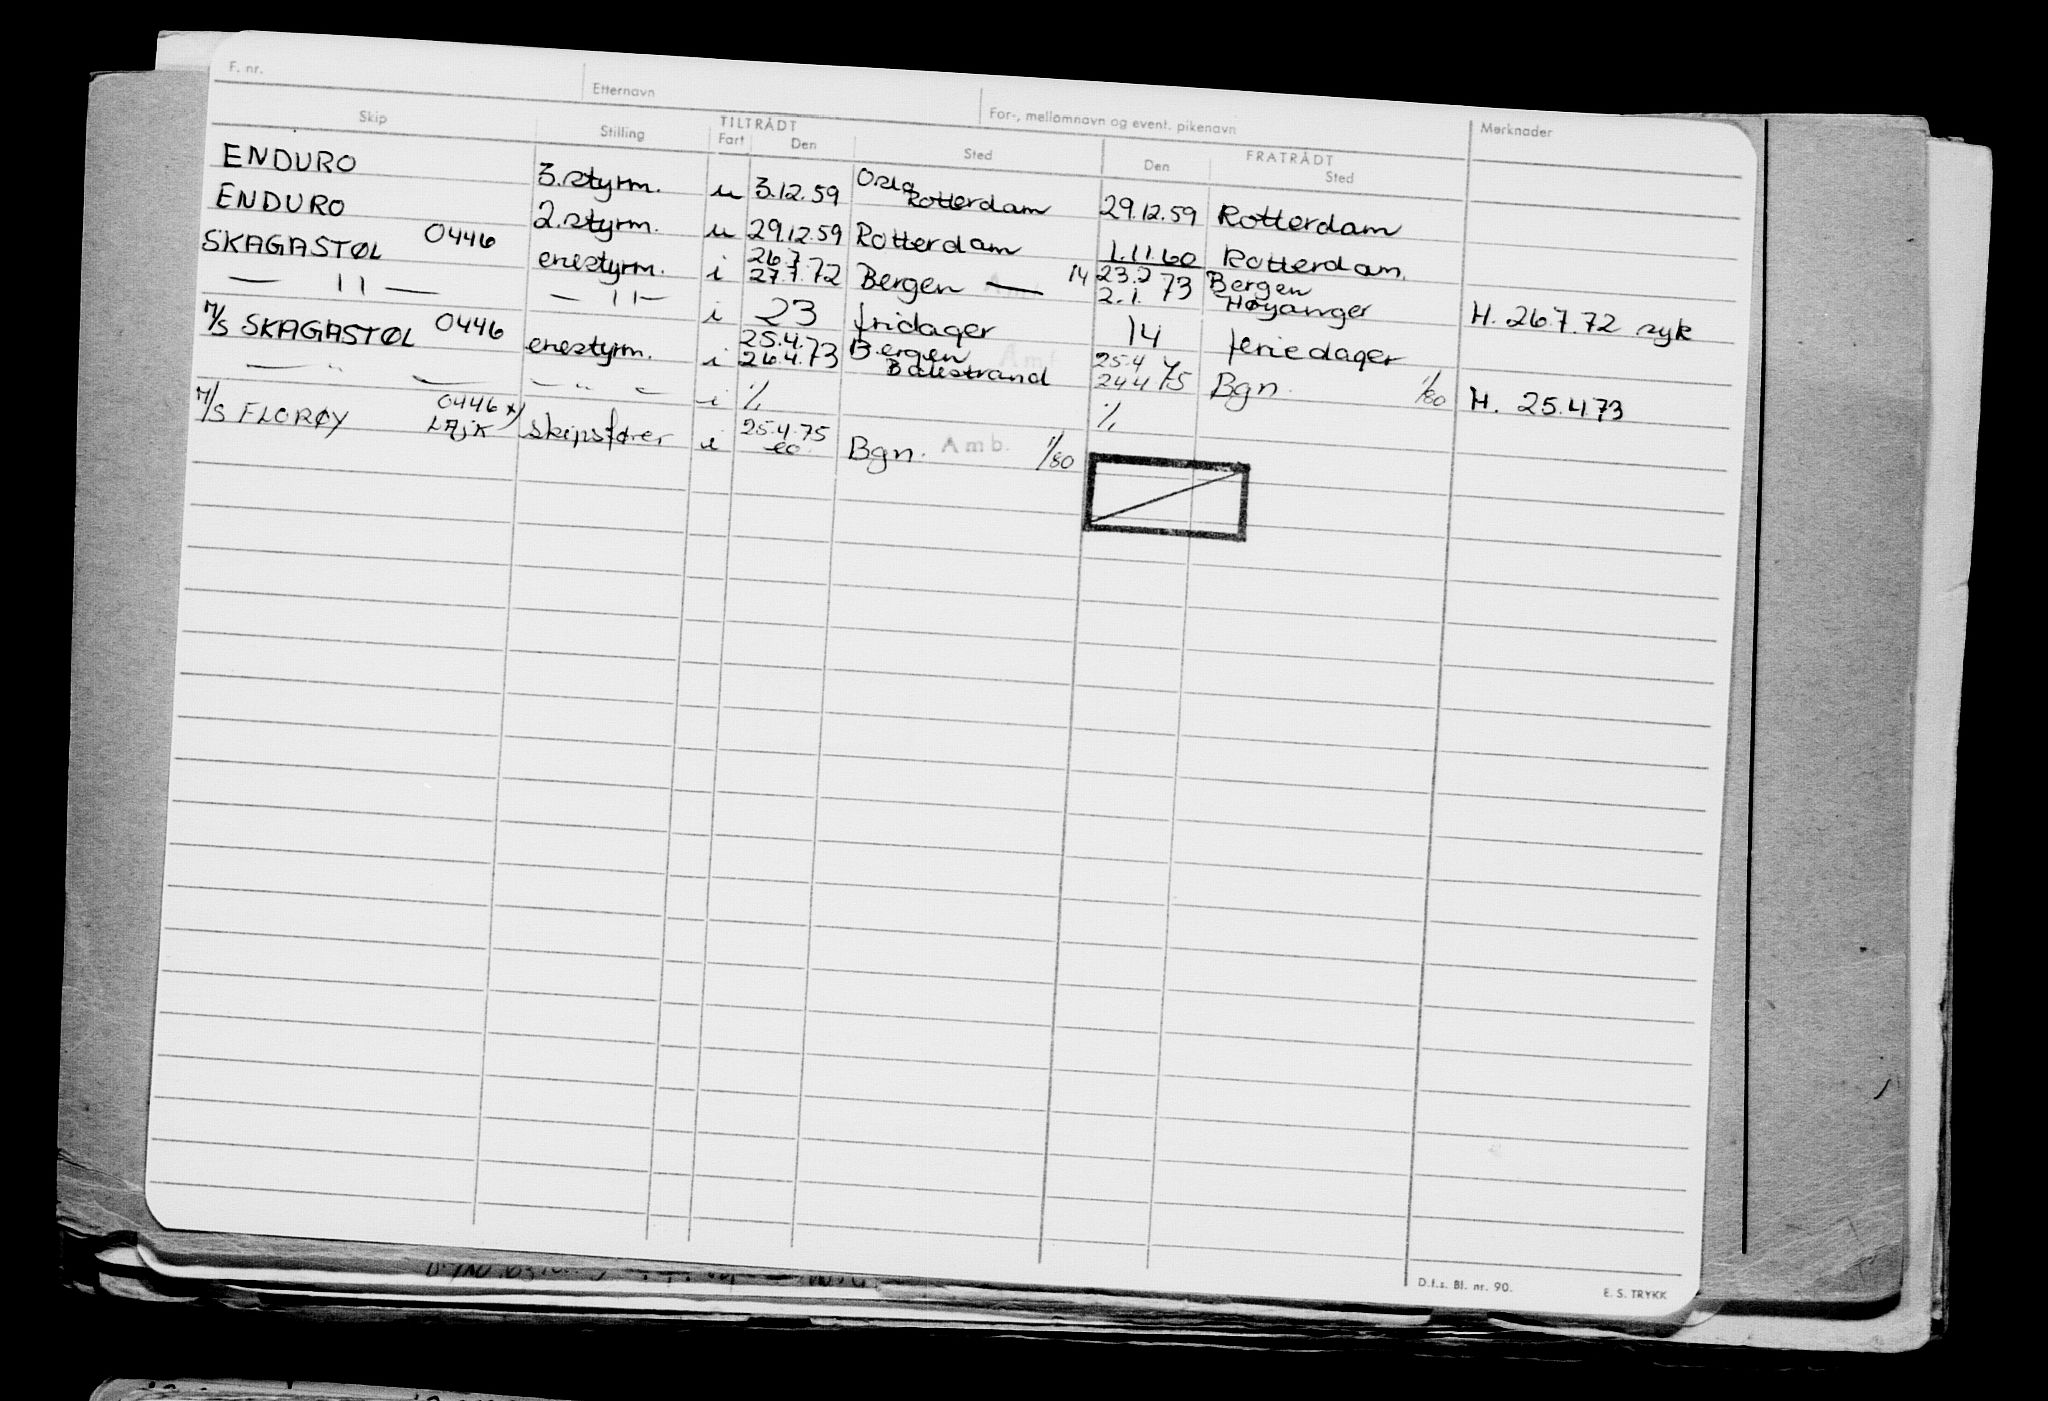 F. nr. Etternavn For-, mellomnavn og event. pikenavn Merknader
Skip Stilling TILTRÅDT FRATRÅDT
Fart Den Sted Den Sted
ENDURO 3.styrm. u 3.12.59 Oslo Rotterdam 29.12.59 Rotterdam
ENDURO 2.styrm. u 29.12.59 Rotterdam 1.11.60 Rotterdam.
SKAGASTØL 0446 enestyrm. i 26.7. 27.7.72 Bergen — 14 23.2 2.1. 73 Bergen Høyanger H. 26.7.72 syk
— 11 — — 11 — i 23 fridager 14 feriedager
M/S SKAGASTØL 0446 enestyrm. i 25.4. 26.4.73 Bergen Balestrand 25.4 24.4 75 Bgn. 1/80 H. 25.4.73
— " — — " — i %
%
M/S FLORØY 0446 x) LAJK skipsfører i 25.4.75 Bgn. Amb. 1/80
D.f.s. Bl. nr. 90. E. S. TRYKK